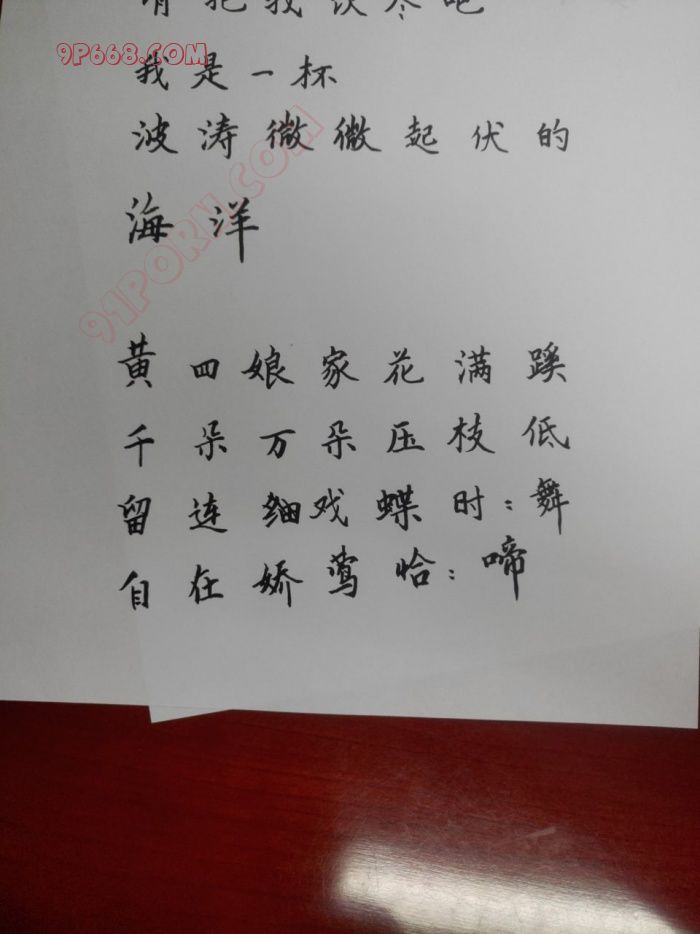 9P668.COM
请把我饮尽吧
我是一杯
波涛微微起伏的
海洋
91PORN.COM
黄四娘家花满蹊
千朵万朵压枝低
留连细戏蝶时:舞
自在娇莺恰:啼